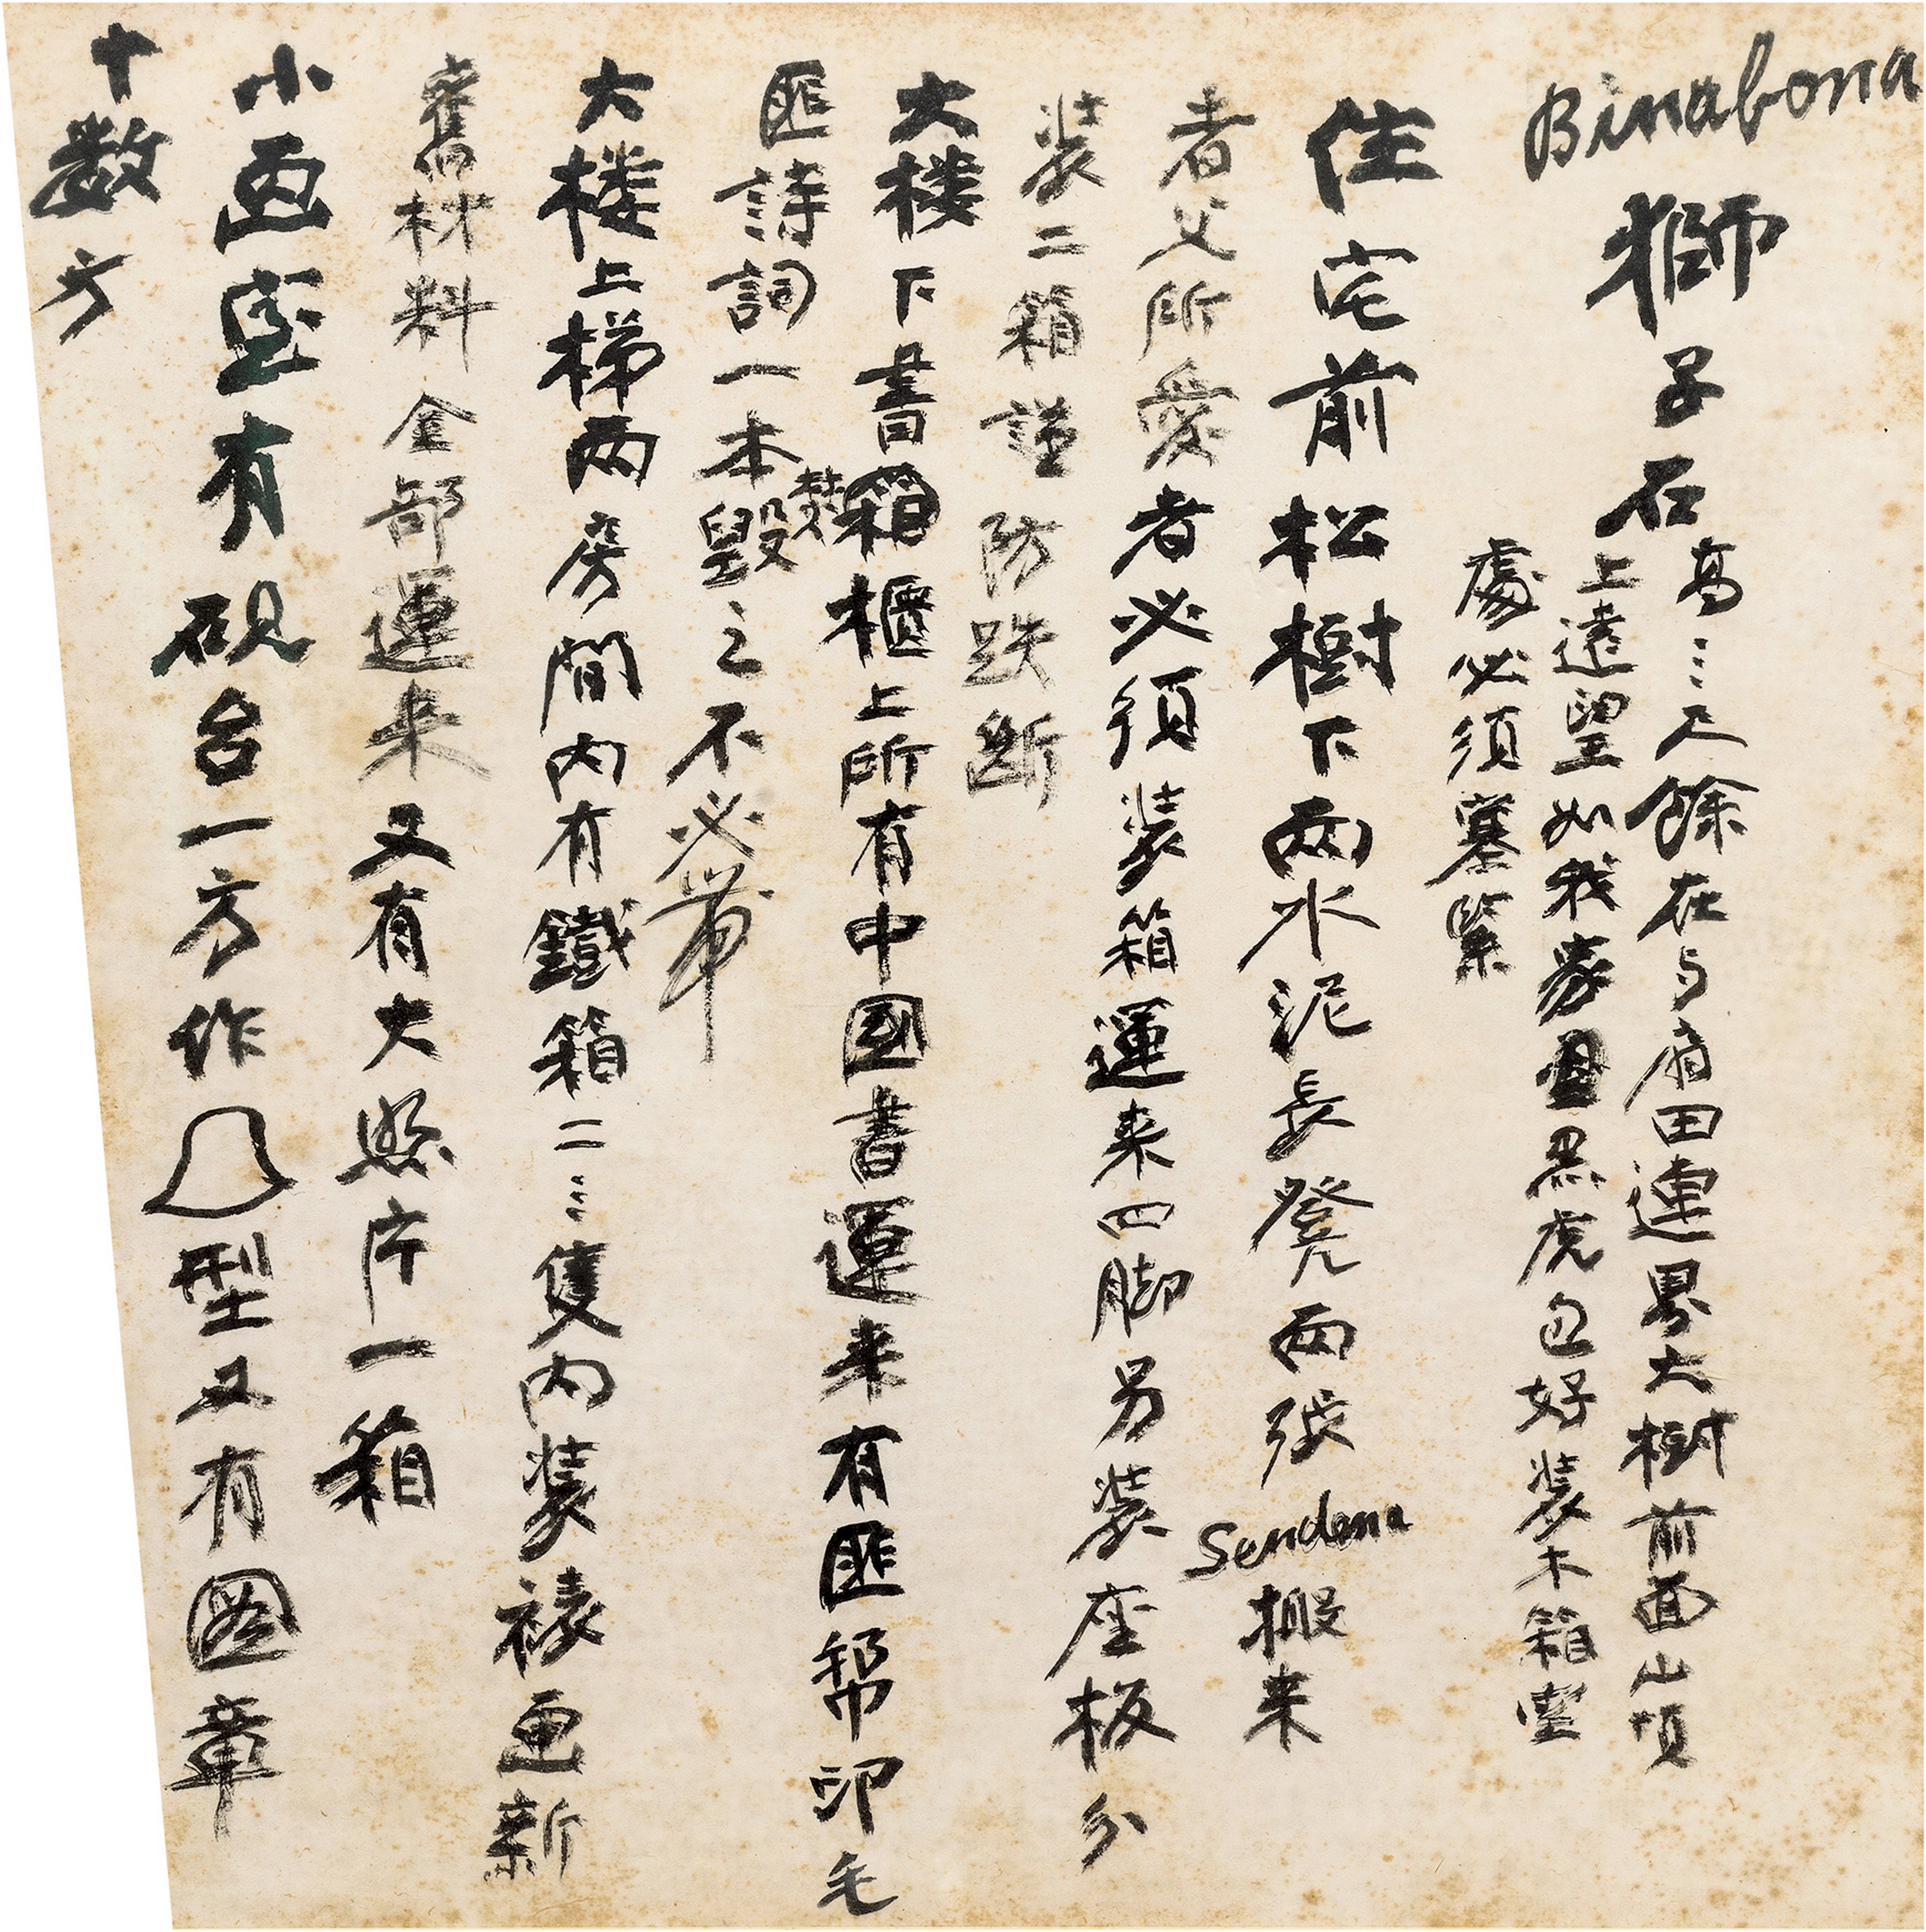 Binabona
獅子石
高三尺餘在与甪田連界大樹前面山頂
上遠望如我家黑虎包好裝木箱空
處必須塞緊
住宅前松樹下兩水泥長凳兩張
Sendena 搬来
者父所愛者必須裝箱運来四脚另裝座板分
裝二箱謹防跌斷
大楼下書箱櫃上所有中國書運来有匪幫印毛
匪詩詞一本焚毀之不必帶
大楼上梯两房間内有鐵箱二三隻内裝裱画新
舊材料全部運来又有大照片一箱
小画室有硯台一方作型又有圖章
十数方